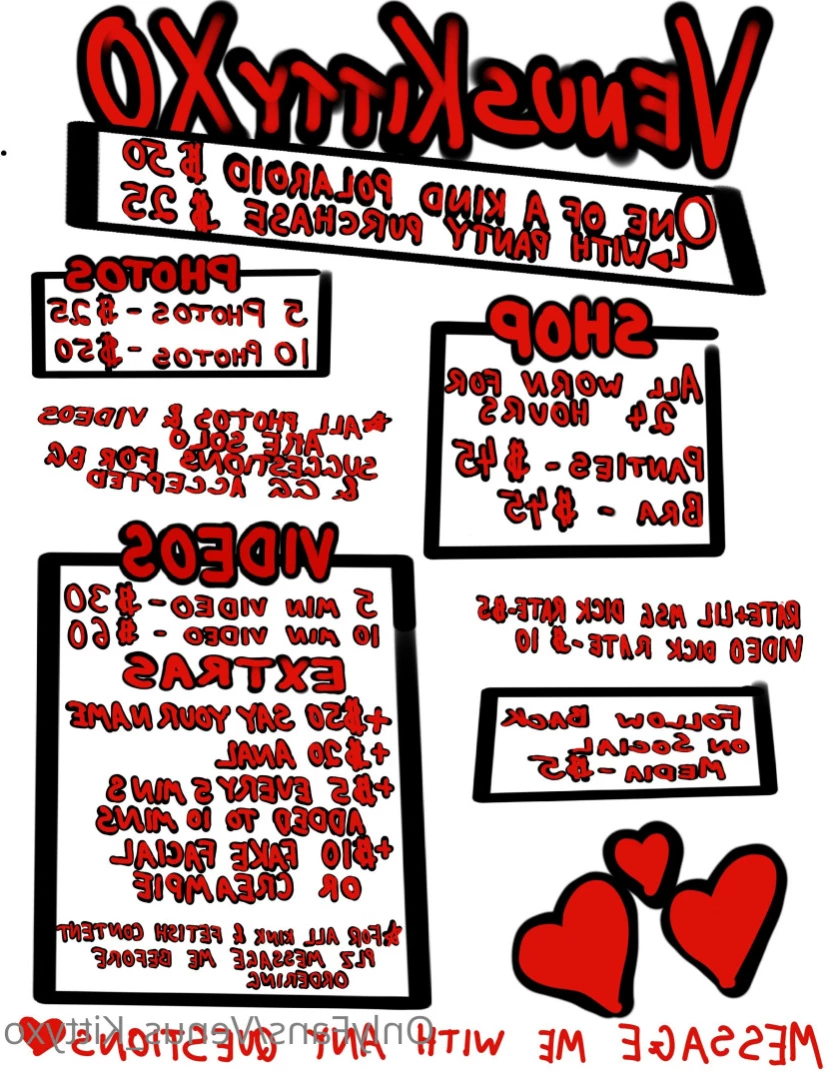 VenusKittyXO
One of a kind polaroid $50
↳with panty purchase $25
PHOTOS
5 Photos - $25
10 Photos - $50
SHOP
All worn for
24 hours
Panties - $45
Bra - $45
★All photos & videos
are solo
suggestions for BG
& GG accepted
VIDEOS
5 min video - $30
10 min video - $60
EXTRAS
+$50 say your name
+$20 anal
+$5 every 5 mins
added to 10 mins
+$10 fake facial
or creampie
★For all kink & fetish content
plz message me before
ordering
Rate+lil msg dick rate-$5
Video dick rate-$10
Follow back
on social
media - $5
Message me with any questions♥
OnlyFans/Venus_Kittyxo